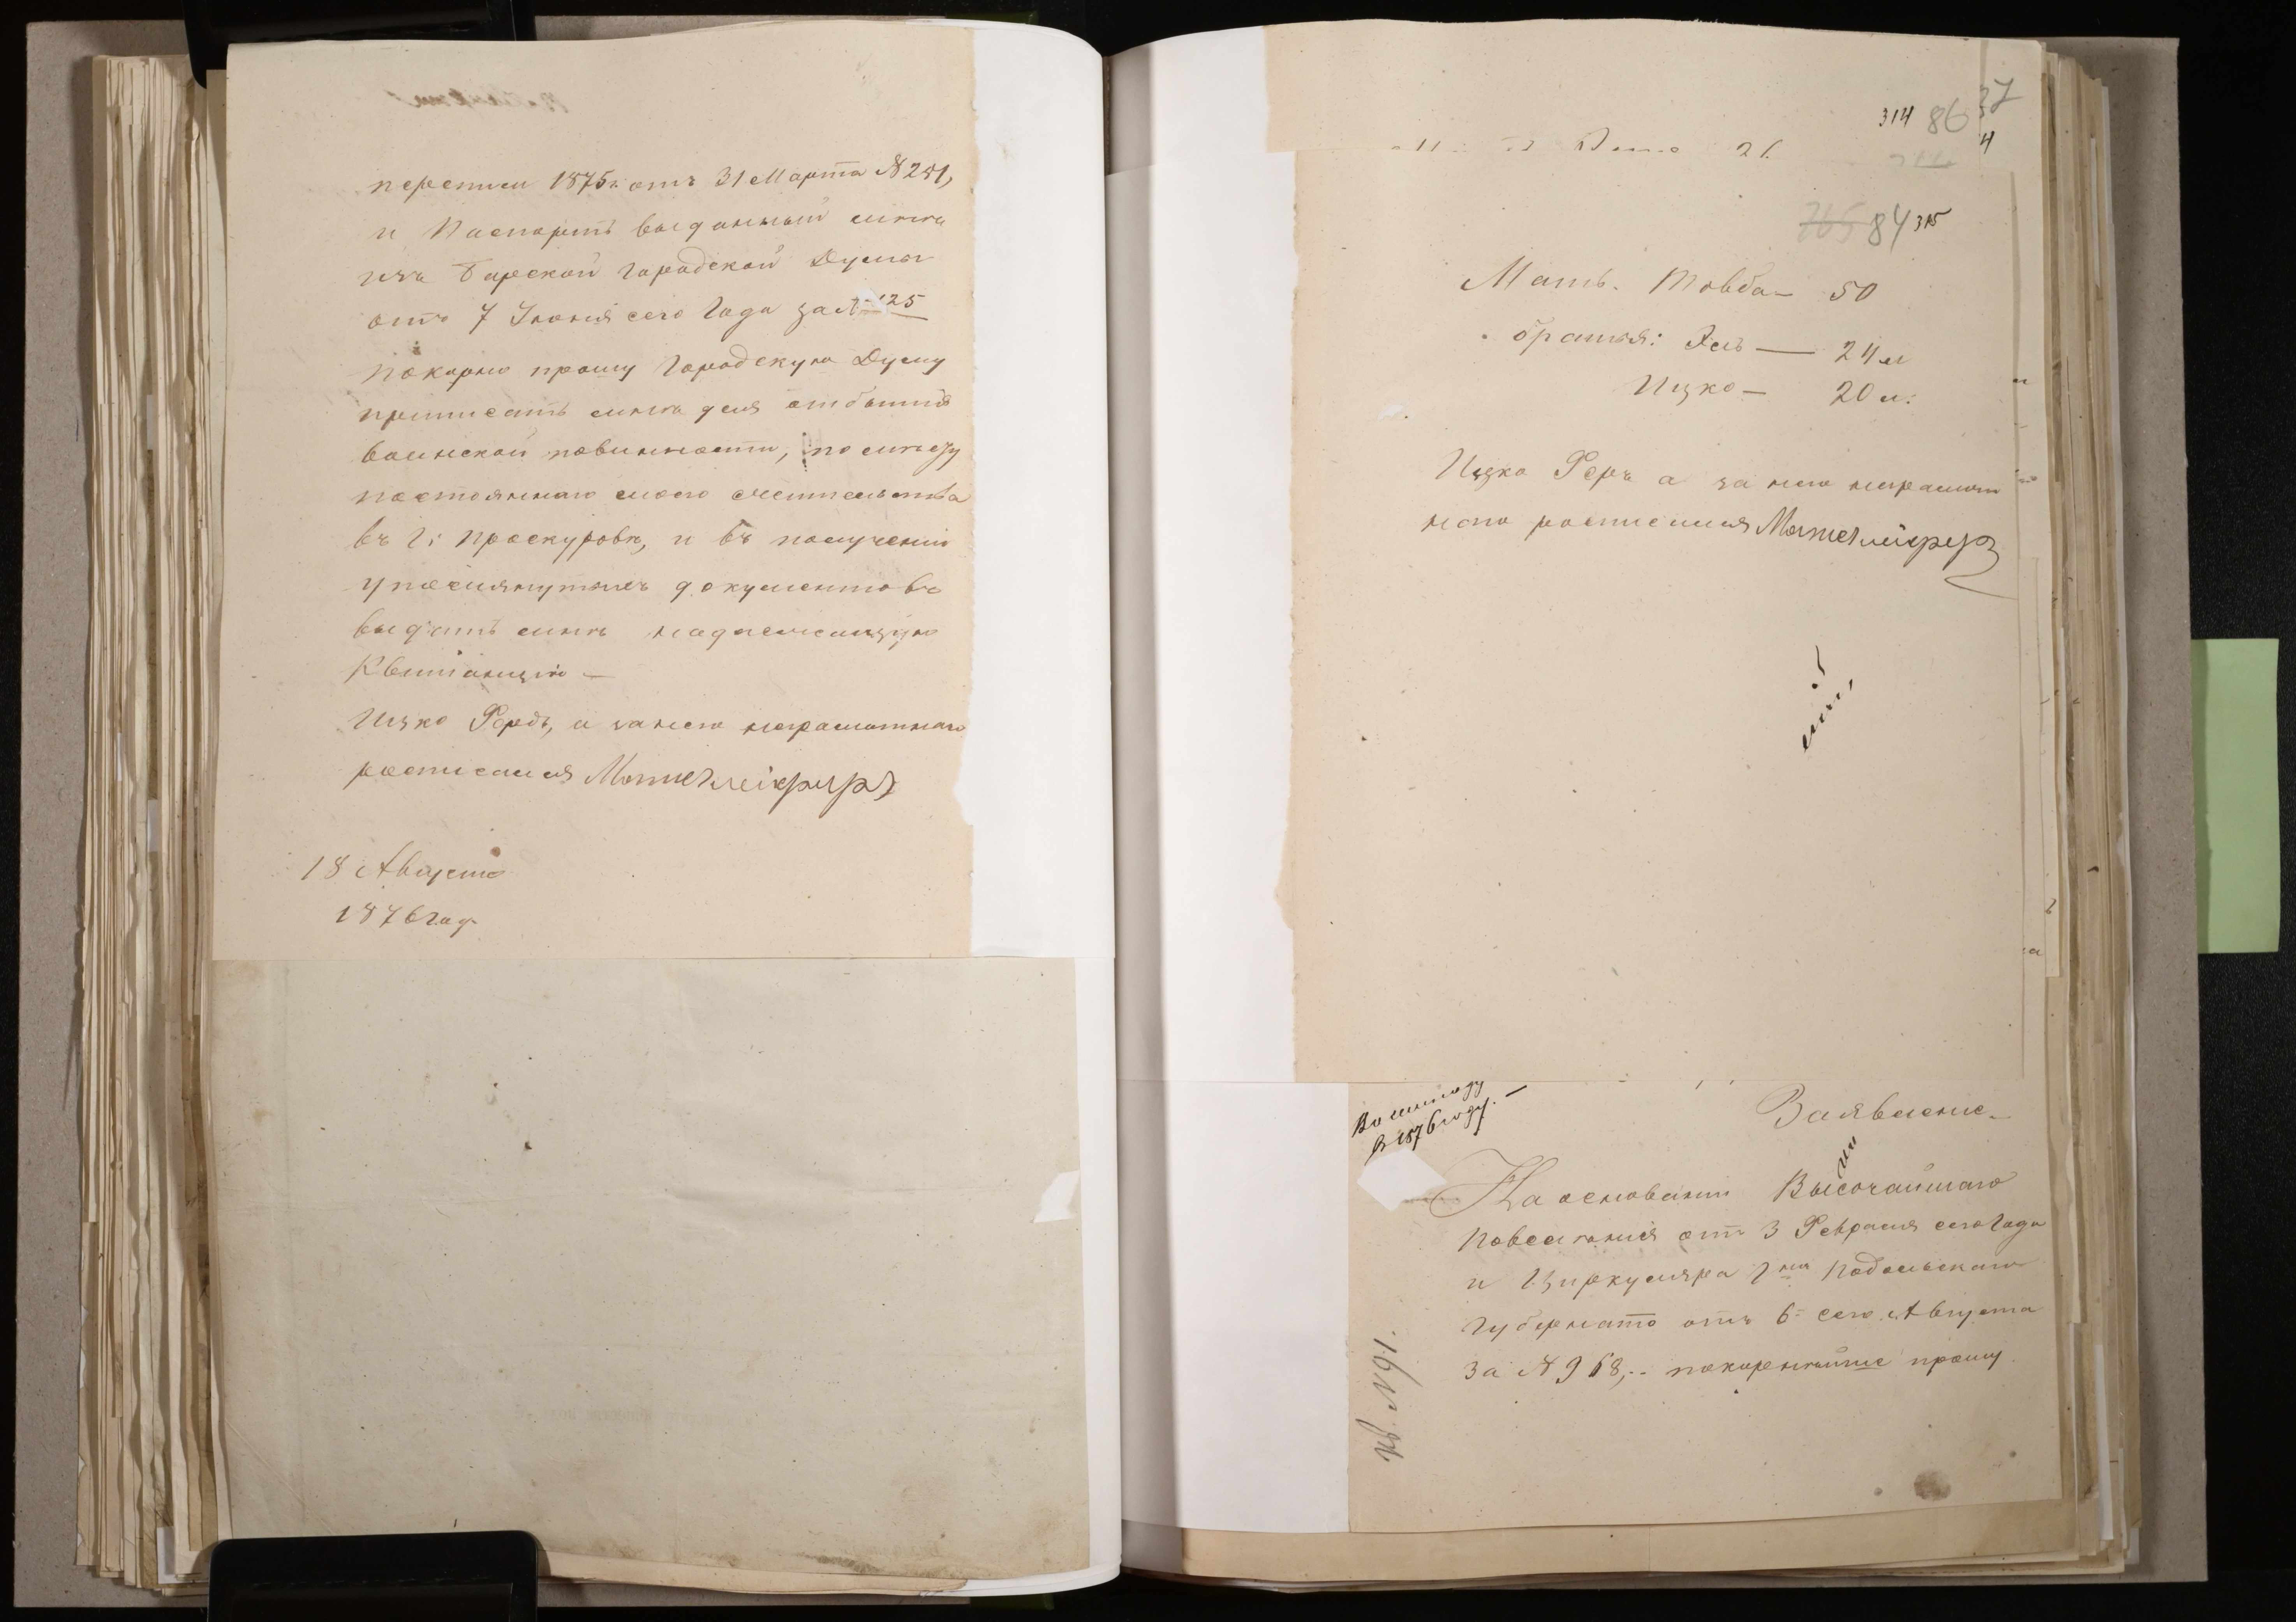 переписи 1875 г. отъ 31 Марта № 251,
и Паспортъ выданный мнѣ
изъ Барской Городской Думы
отъ 7 Іюня сего Года за № 125
покорно прошу Городскую Думу
приписать меня для отбытія
воинской повинности, по мнѣ
постояннаго моего жительства
въ г: Проскуровѣ, и въ полученіи
упомянутыхъ документовъ
выдать мнѣ надлежащую
Квитанцію —
Ицко Ферь, а за него неграмотнаго
росписался
18 Августа
1876 год
314 86 37
4
21.
765 84 315
Мать. Товба — 50
братья: — 24 л
Ицко — 20 л:
Ицко Феръ а за него неграмот
наго росписался
В 1876 году. —
Заявленіе.
На основаніи Высочайшаго
повеленія отъ 3 Февраля сего Года
и Циркуляра Подольскаго
Губернато отъ 6 сего Августа
за № 968, .. покорнейше прошу
кв. № 91.